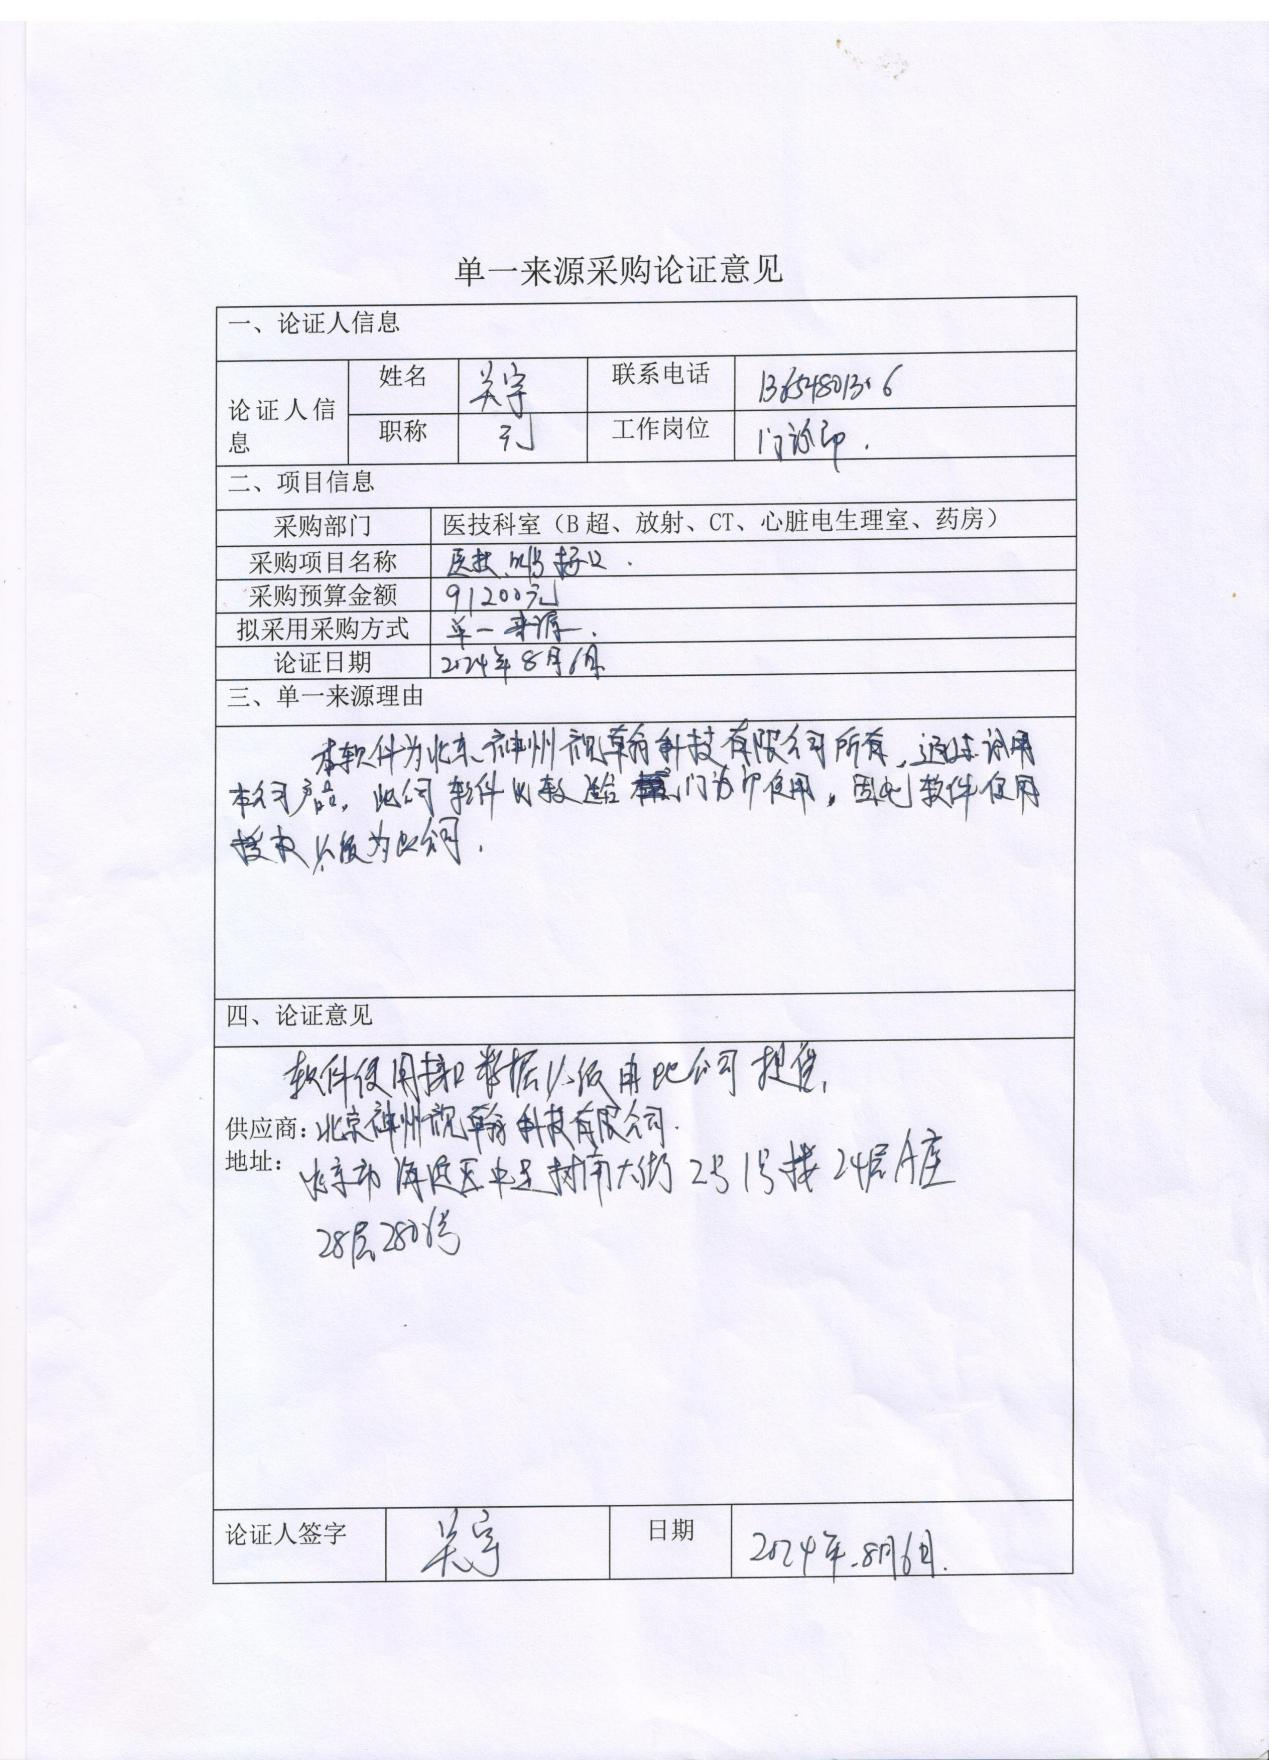 单一来源采购论证意见
一、论证人信息
论证人信息
姓名 关宇 联系电话
职称 工作岗位 门诊部.
二、项目信息
采购部门 医技科室（B超、放射、CT、心脏电生理室、药房）
采购项目名称 医技叫号接口.
采购预算金额 91200元
拟采用采购方式 单一来源.
论证日期 2024年8月6日
三、单一来源理由
本软件为北京神州视翰科技有限公司所有，通过试用
本公司产品，此公司软件比较适合门诊部使用，因此软件使用
授权仅限为此公司.
四、论证意见
软件使用接口数据仅限由此公司提供,
供应商: 北京神州视翰科技有限公司.
地址: 北京市海淀区中关村南大街2号1号楼24层A座
28层2806号
论证人签字 关宇 日期 2024年8月6日.